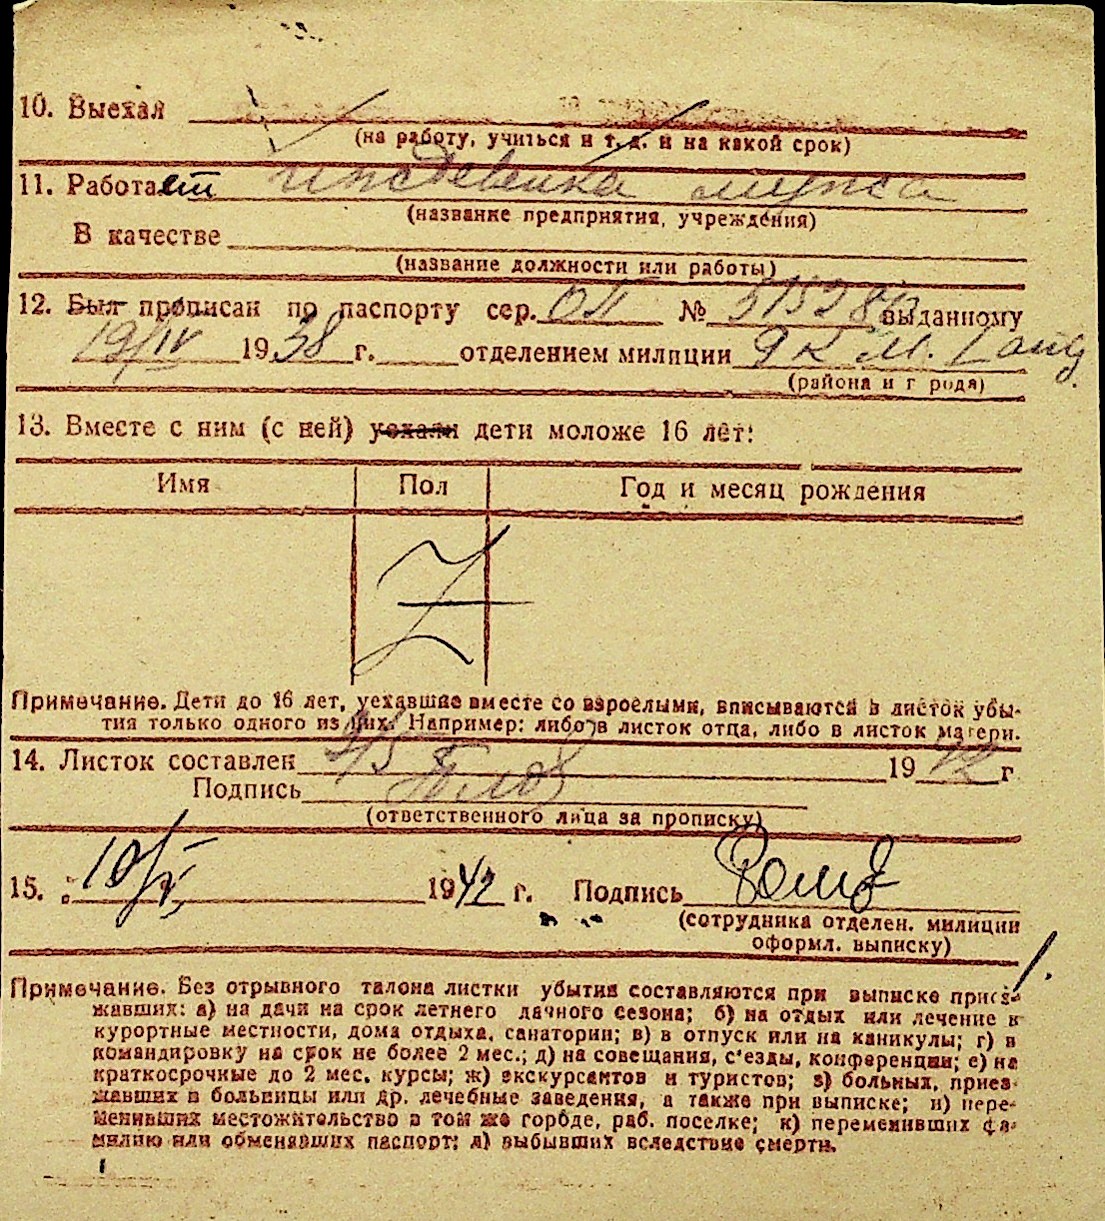 10. Выехал
(на работу, учиться и т. д. и на какой срок)
11. Работает иждевенка мужа
(название предприятия, учреждения)
В качестве
(название должности или работы)
12. Был прописан по паспорту сер. № выданному
19/IV 1938 г. отделением милиции
(района и г рода)
13. Вместе с ним (с ней) уехали дети моложе 16 лет:
Имя Пол Год и месяц рождения
Z
Примечание. Дети до 16 лет, уехавшие вместе со взрослыми, вписываются в листок убы-
тия только одного из них. Например: либо в листок отца, либо в листок матери.
14. Листок составлен 9/5 1942 г
Подпись
(ответственного лица за прописку)
15. 10/V, 1942 г. Подпись
(сотрудника отделен. милиции
оформл. выписку)
1.
Примечание. Без отрывного талона листки убытия составляются при выписке приез-
жавших: а) на дачи на срок летнего дачного сезона; б) на отдых или лечение в
курортные местности, дома отдыха, санатории; в) в отпуск или на каникулы; г) в
командировку на срок не более 2 мес.; д) на совещания, с'езды, конференции; е) на
краткосрочные до 2 мес. курсы; ж) экскурсантов и туристов; з) больных, приез-
жавших в больницы или др. лечебные заведения, а также при выписке; и) пере-
менивших местожительство в том же городе, раб. поселке; к) переменивших фа-
милию или обменявших паспорт; л) выбывших вследствие смерти.